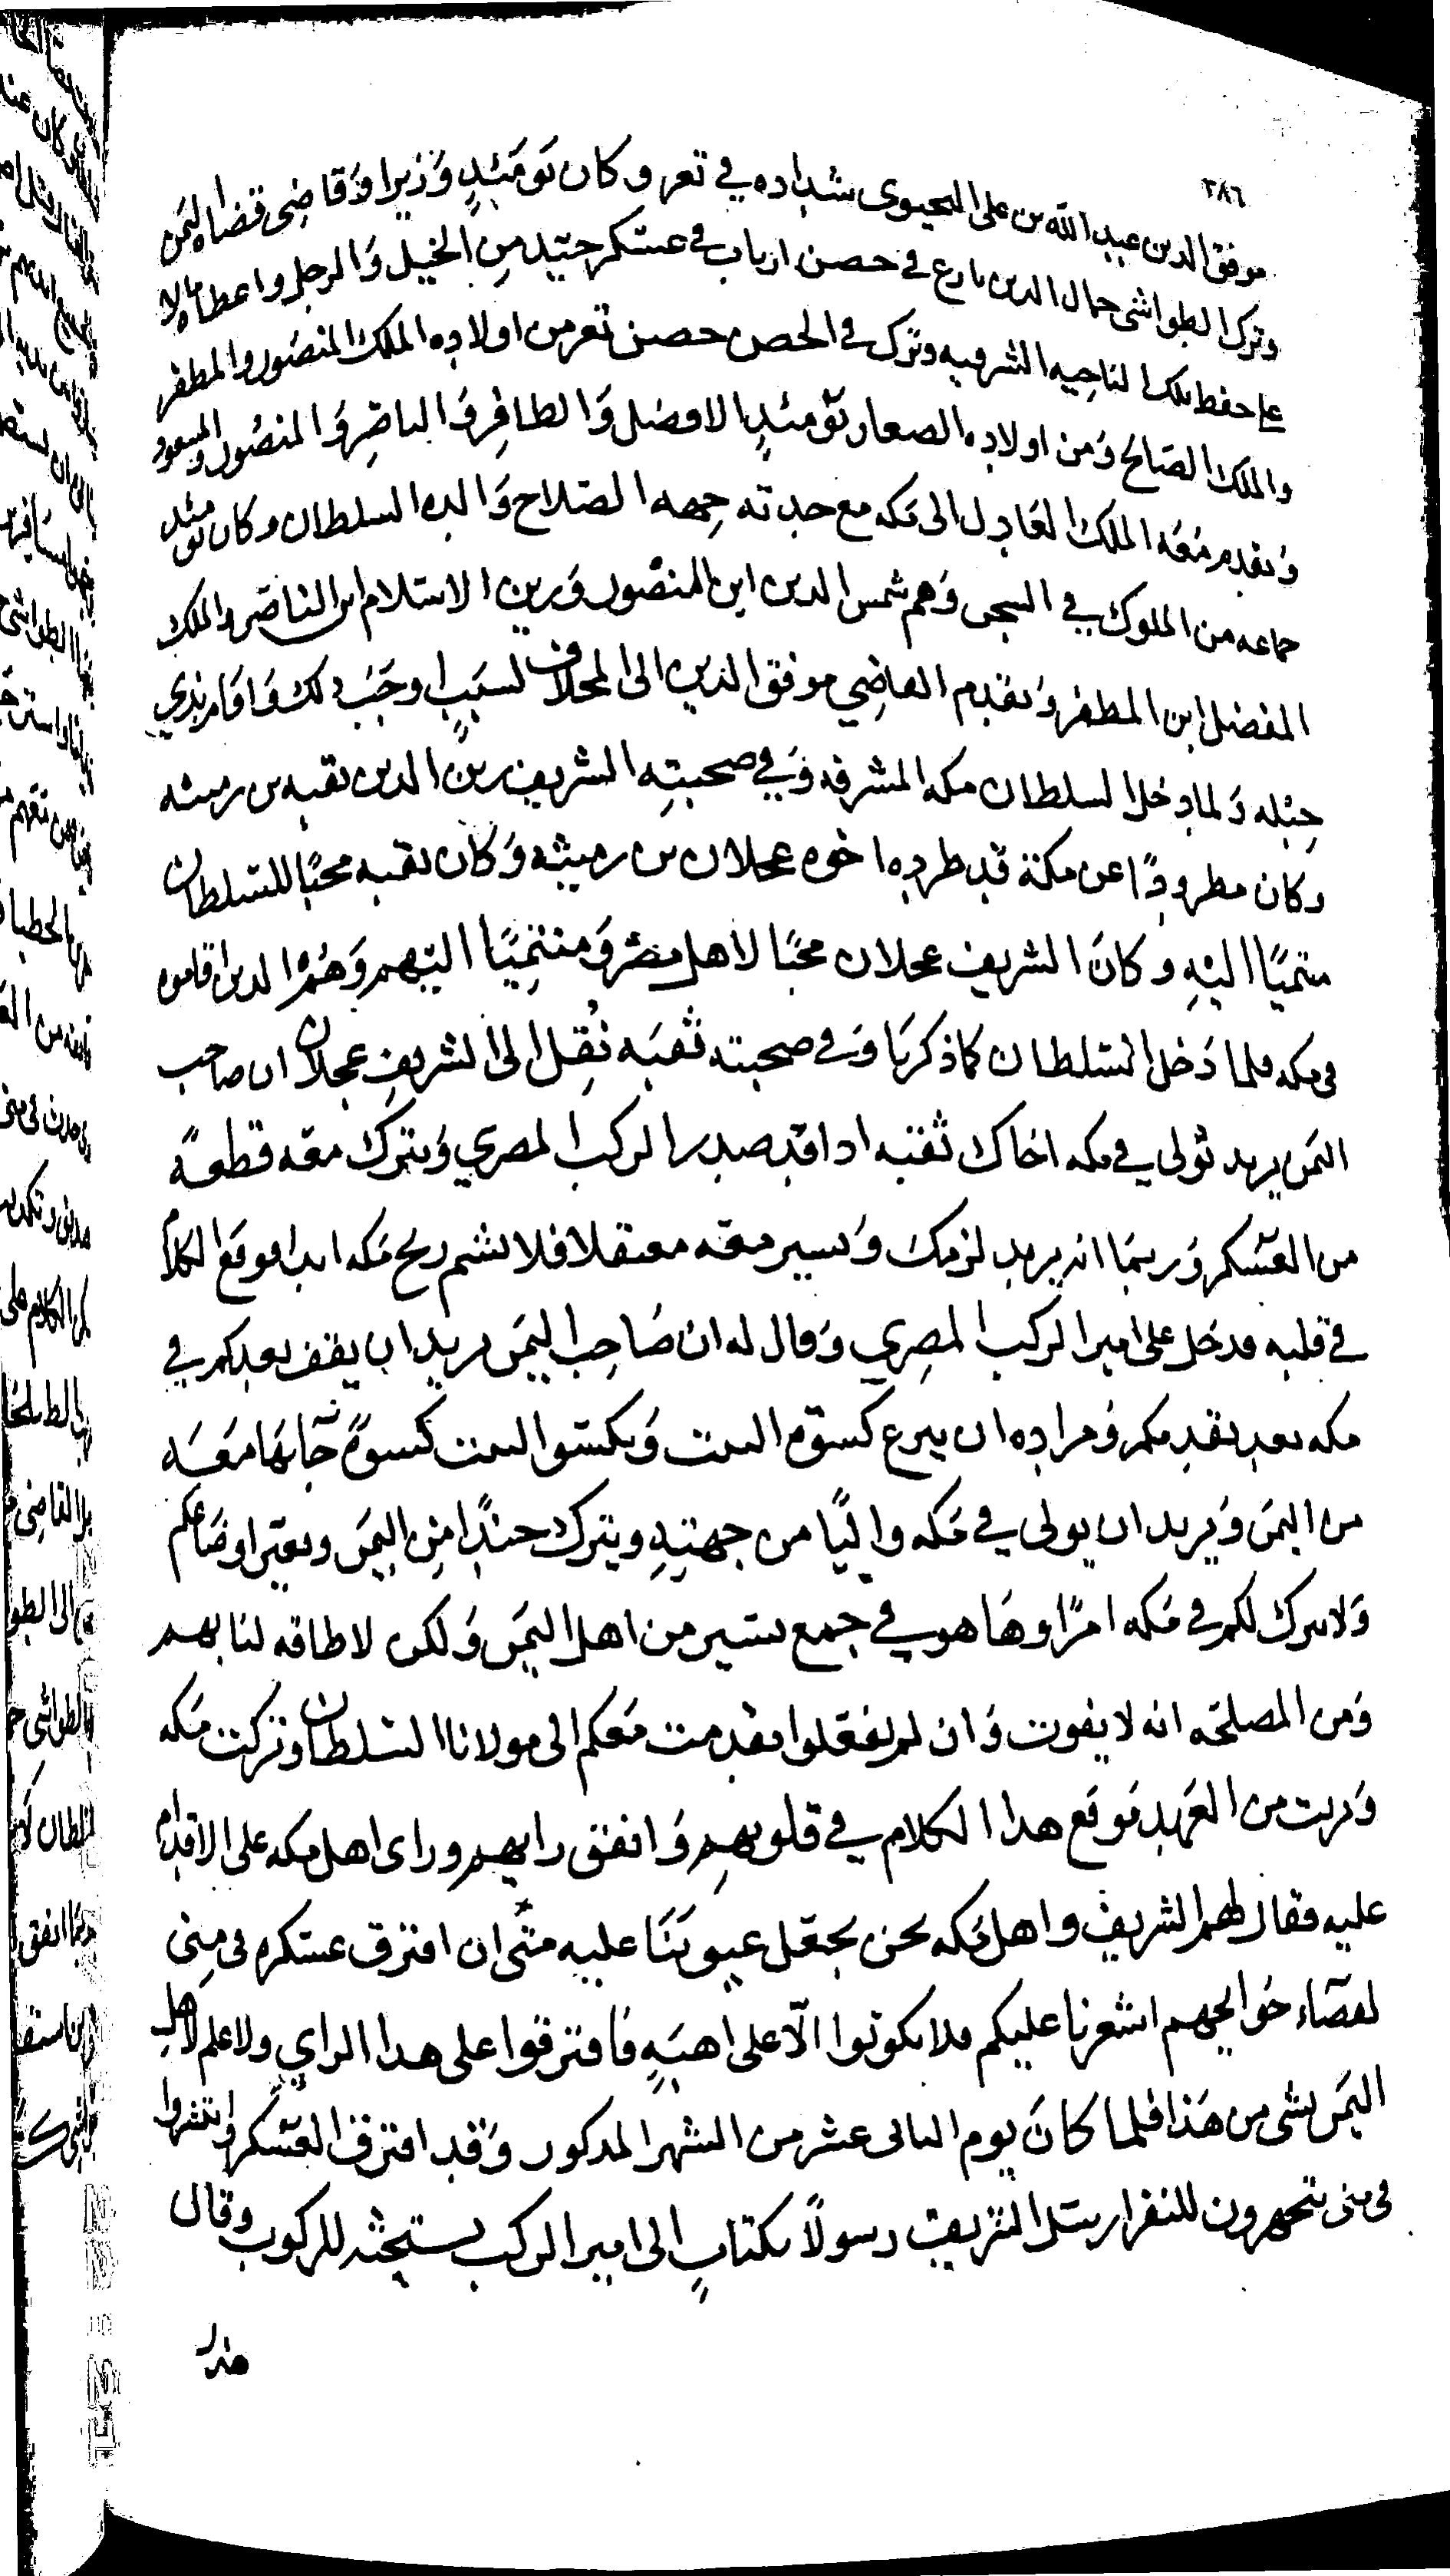 ٣٨٦
موفق الدين عبد الله بن على اليحيوى شداده في تعز وكان يَومَئِدٍ وَزيرا وَقاضِى قضاه اليَمن
وترك الطواشى جمال الدين بارع في حصن ارياب في عسكر جيّد مِن الخيل وَالرجل واعطاه مالا
على حفط تلك الناحيه الشرقيه وترك في الحصن حصن تعز من اولادِه الملك المنصُور والمظفر
والملك الصَالح وَمن اولادِه الصعار يَوْمئدٍ الافضل وَالظافِر وَالناصِر وَالمنصُور والمسعود
وَتقدم مَعَه الملك العَادِل الى مَكه مع جدته جِهه الصَلاح وَالده السلطان وكان يَومئد
جماعه من الملوك في السجن وَهم شمس الدين ابن المنصُور وَزين الاسلام ابن الناصَر والملك
المفضل ابن المظفر وَتقدم القاضِي موفق الدين الى المخلاف لسَبَبٍ اوجَبَ دلك وَاقام بذي
جبله وَلما دخل السلطان مكه المشرفه وَفي صحبتِه الشريف زين الدين ثقبه بن رميثه
وكان مطرودًا عن مكة قد طرده اخوه عجلان بن رميثه وَكان ثقبه محبًا للسلطان
منتميًا اليْهِ وكانَ الشريف عجلان محبًا لاهل مصْر وَمنتمِيًا اليهم وَهُمْ الدين اقاموه
في مكه فلما دَخل السلطان كما ذكرنا وَفي صحبته ثقبَه نُقِل الى الشريفِ عجلان ان صاحب
اليَمن يريد يُولى في مكه اخاك ثقبه ادا قد صدر الركب المصري وَيترك معَه قطعةً
من العسْكر وَربمَا انه يريد لزمك وَيسير معَه معتقلا فلا تشم ريح مَكه ابدا فوقعَ الكلامُ
في قلبه فدخل على امير الركب المصرِي وَقال له ان صَاحِب اليمَن يريد ان يقف بعدكم في
مكه بعد تقدمكم وَمرادِه ان ينزع كسوَة البيت وَيكسَوا البيت كسوةً جَابهَا مَعَه
من اليمَن وَيريد ان يولى في مَكه واليًا من جهتِهِ ويترك جندًا مِن اليمَن ويغير اوضَاعكم
وَلا يترك لكم في مَكه امرًا وهَا هو في جمع يسير من اهل اليمَن وَلكن لا طاقه لنا بهم
وَمن المصلحَه انه لا يفوت وَان لم تفعَلوا تقدمت مَعكم الى مولانا السلطان وتركت مَكه
وَبرئت من العَهد فوقع هدا الكلام في قلوبهم وَاتفق رايهم وراى اهل مكه على الاقدام
عليه فقال لهم الشريف واهل مَكه نحن نجعَل عيونَنَا عليه متى ان افترق عسكره فى مِنى
لقضَاء حَوائجهم اشعرنا عليكم فلا تكونوا الّا على اهبَهٍ فافترقوا على هدا الراي ولا علم لاهل
اليمَن بشى من هَذا فلما كانَ يوم الثانى عشر من الشهر المدكور وَقد افترق العسْكر وانتشروا
فى منى يتجهزون للنفر ارسَل الشريف رسولاً بكتابٍ الى امير الركب يستحثه للركوب وقال